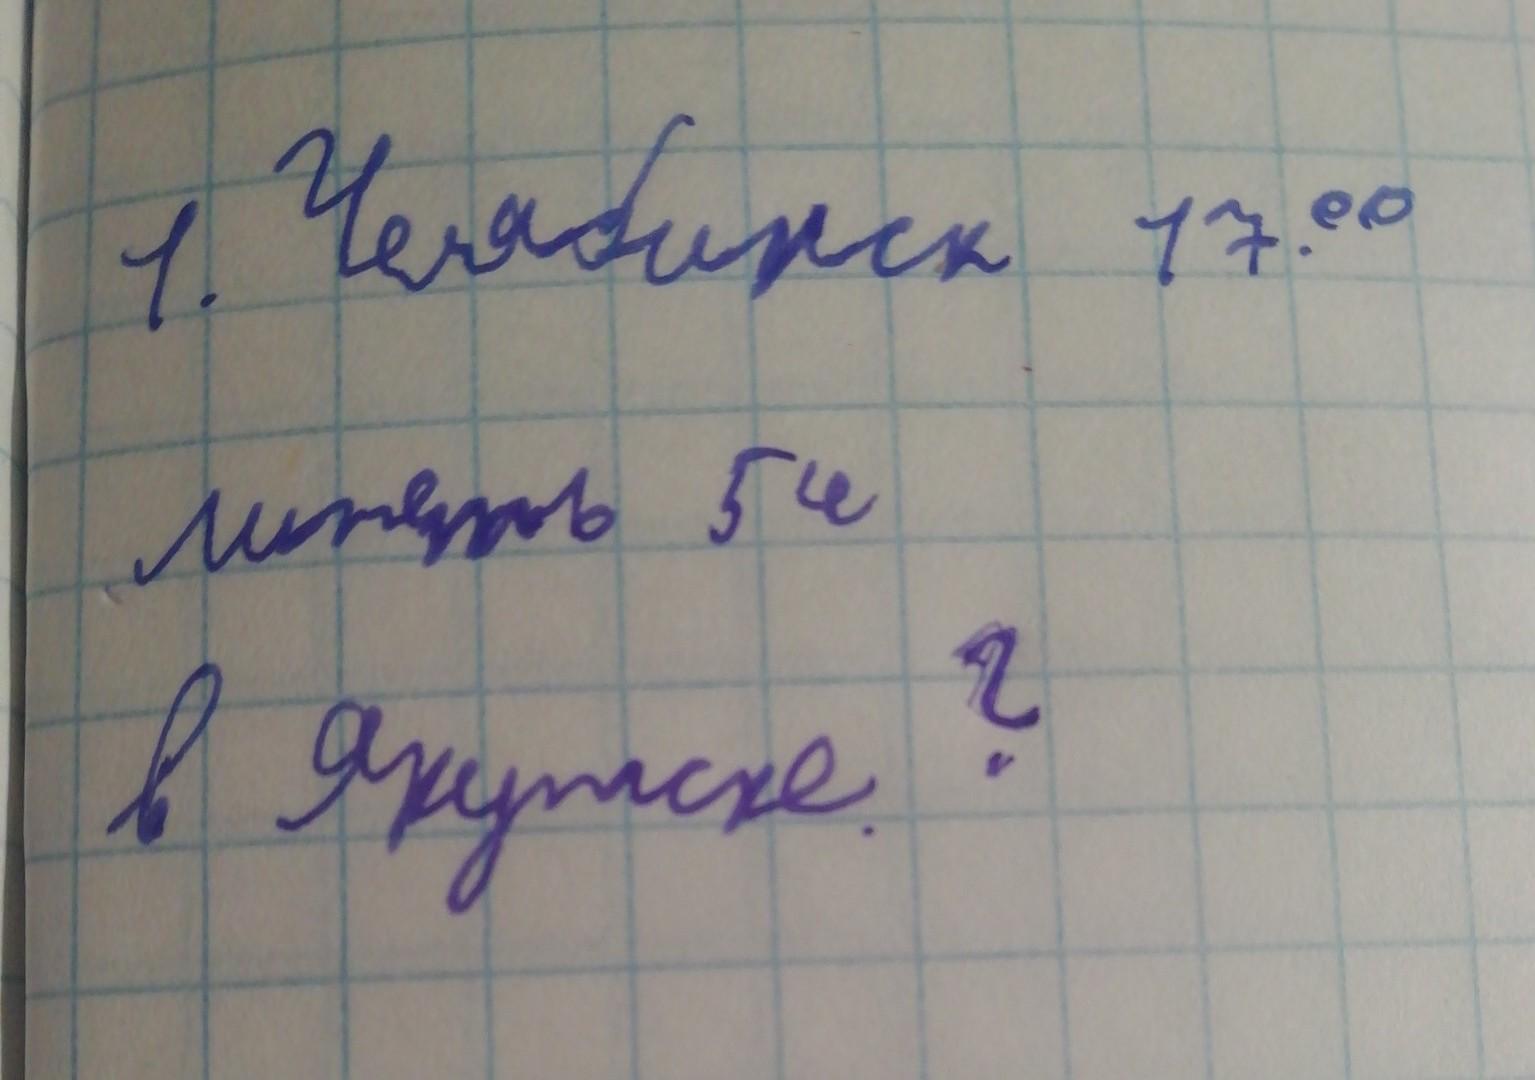 1. Челябинск 17.00
лететь 5ч
в Якутске. ?